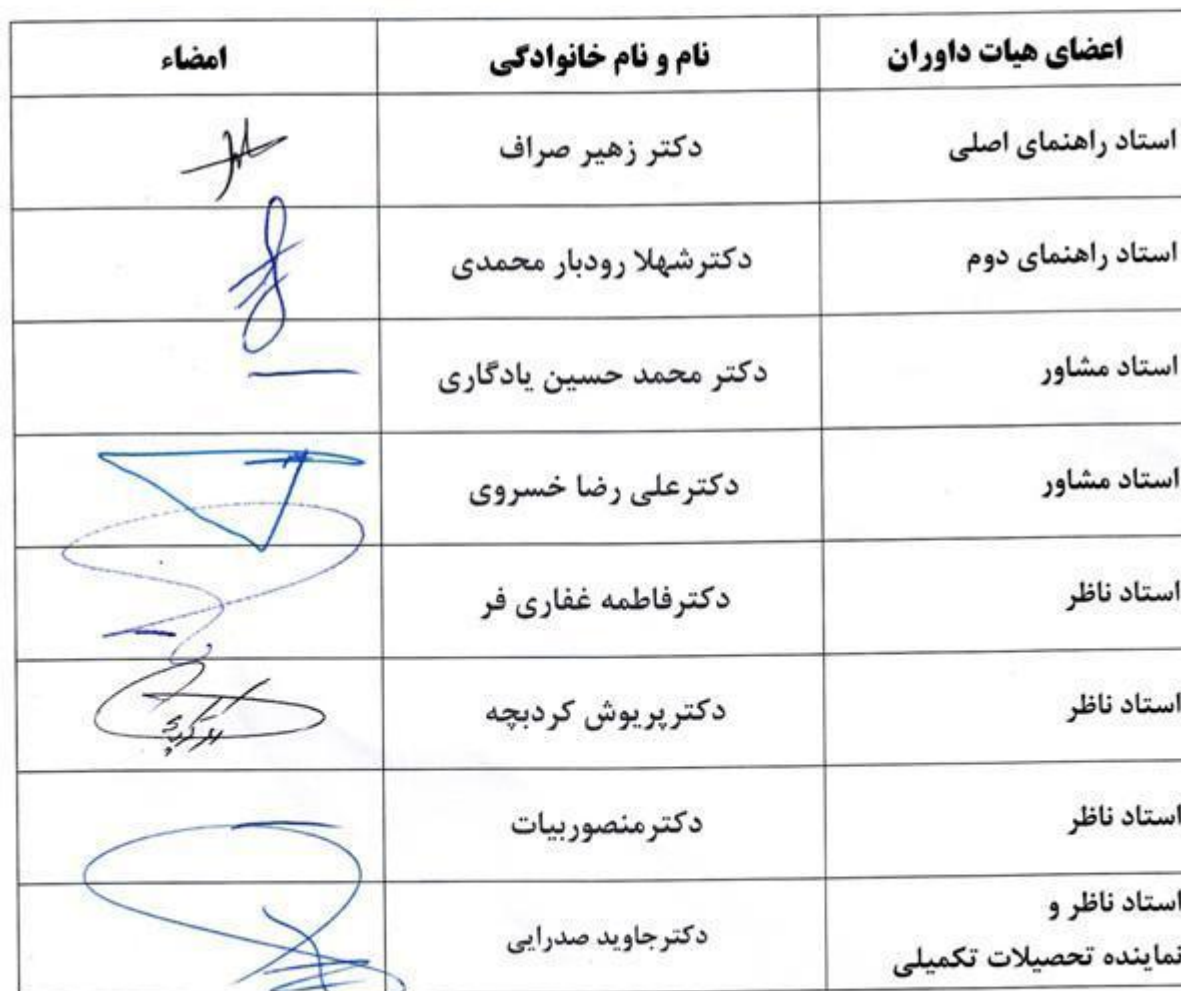 اعضای هیات داوران	نام و نام خانوادگی	امضاء
استاد راهنمای اصلی	دکتر زهیر صراف
استاد راهنمای دوم	دکترشهلا رودبار محمدی
استاد مشاور	دکتر محمد حسین یادگاری
استاد مشاور	دکترعلی رضا خسروی
استاد ناظر	دکترفاطمه غفاری فر
استاد ناظر	دکترپریوش کردبچه
استاد ناظر	دکترمنصوربیات
استاد ناظر و
نماینده تحصیلات تکمیلی	دکترجاوید صدرایی